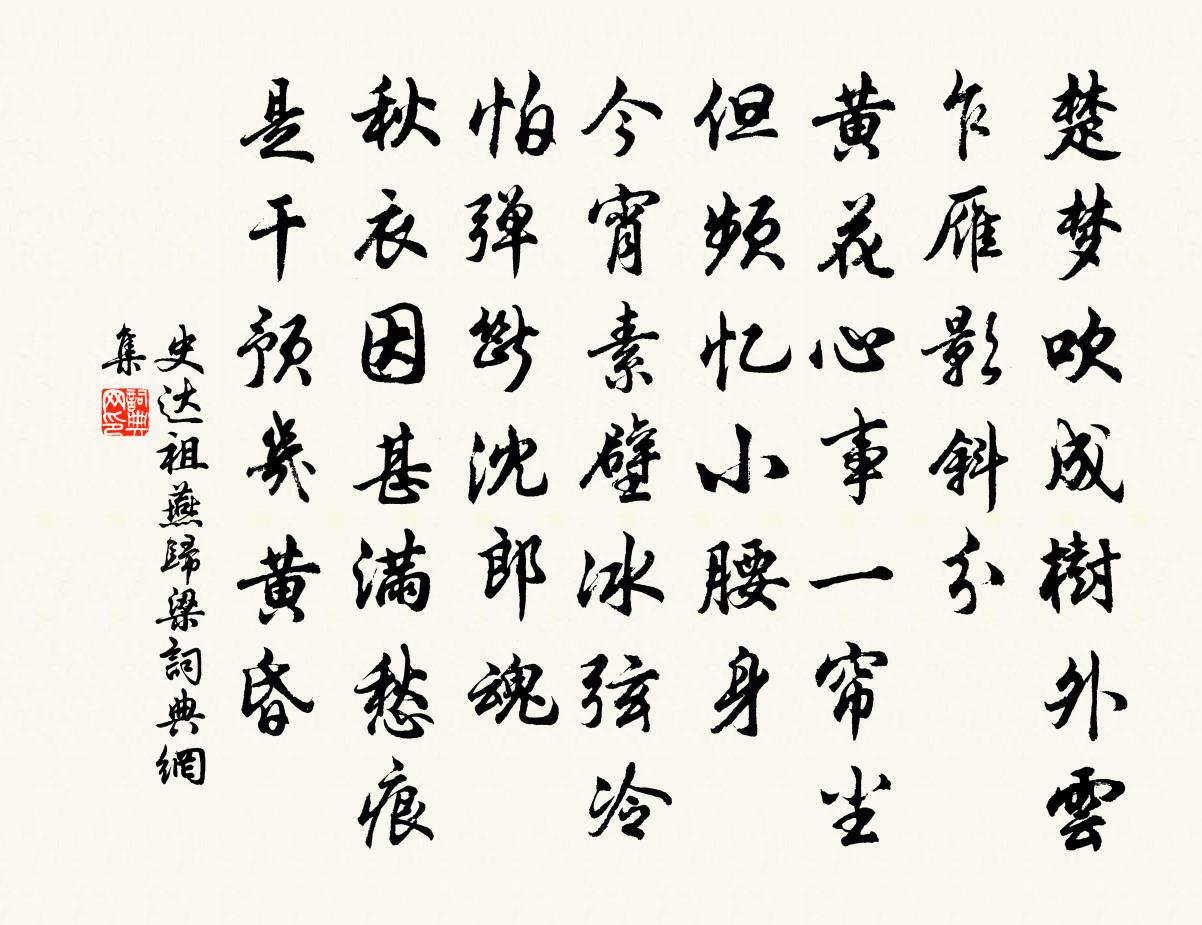 楚梦吹成樹外雲
乍雁影斜分
黄花心事一帘尘
但频忆小腰身
今宵素壁冰弦冷
怕弹斷沈郎魂
秋衣因甚满愁痕
是干预幾黄昏
史达祖燕歸梁詞典網
集
詞典
网印